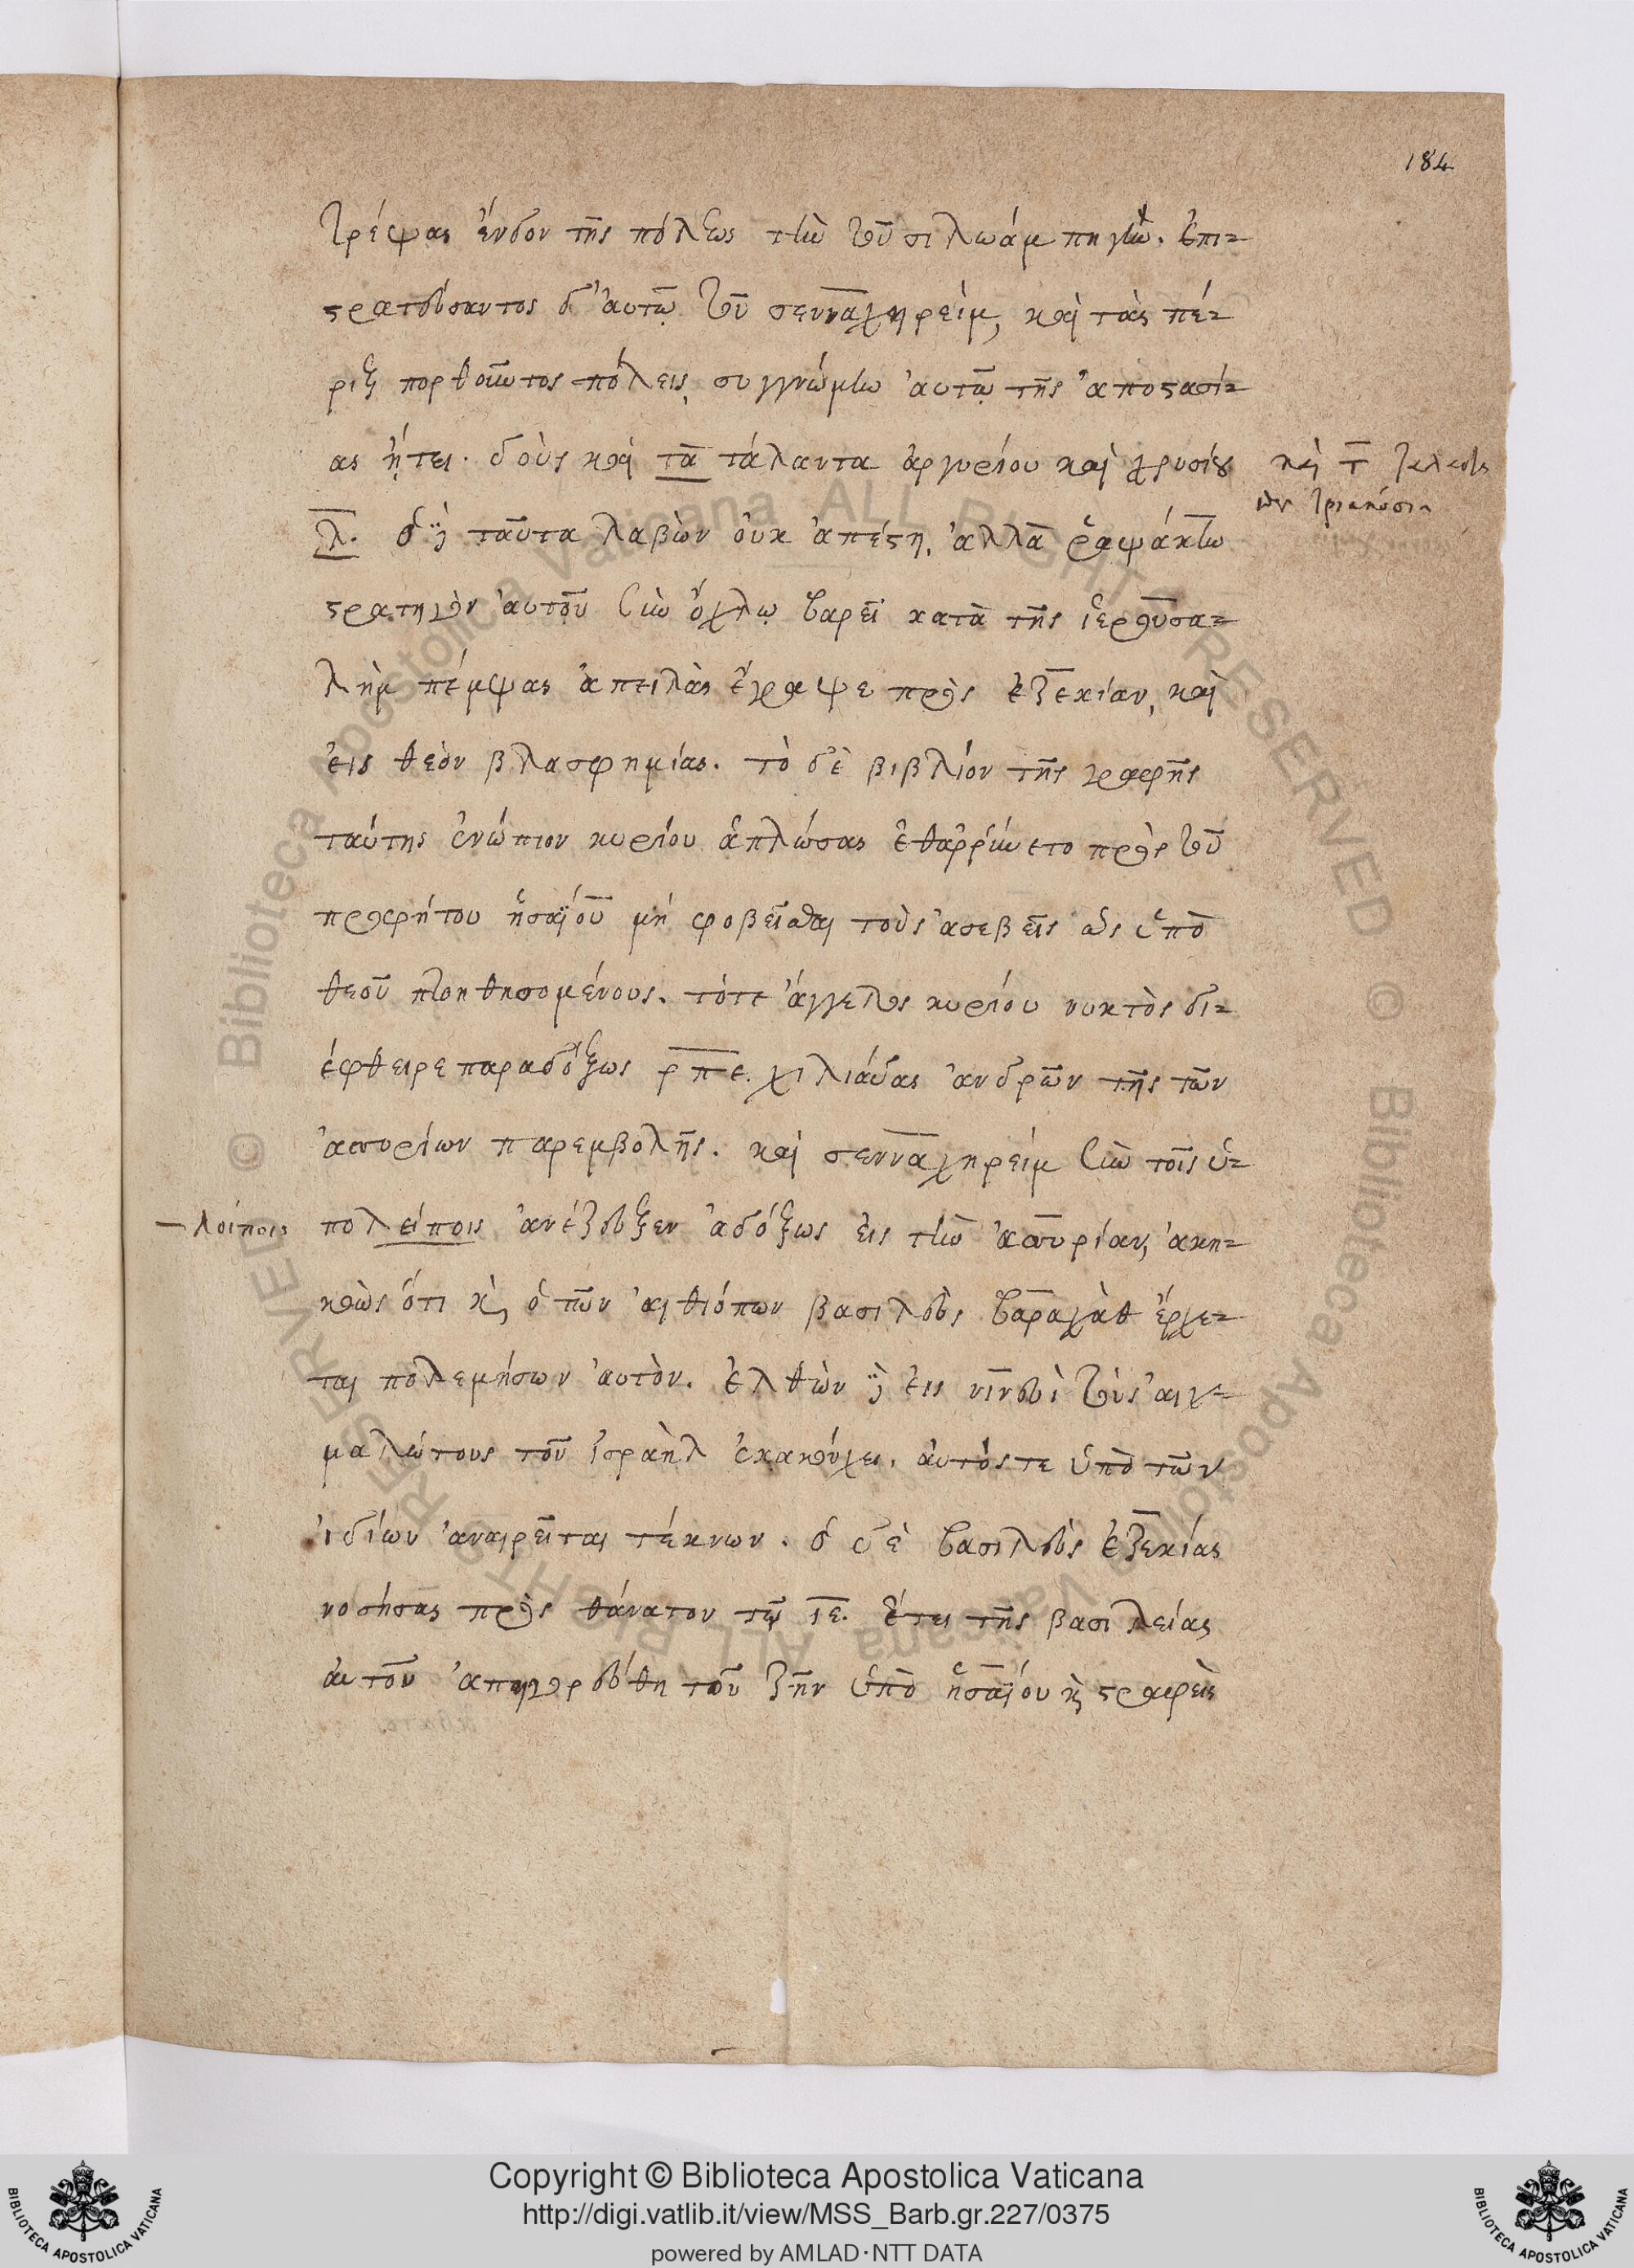 184
τρέψας ἔνδον τῆς πόλεως τὴν τοῦ σιλωάμ πηγήν. ἐπι-
στρατεύσαντος δ' αὐτῷ τοῦ σενναχηρείμ, καὶ τὰς πέ-
ριξ πορθοῦντος πόλεις, συγγνώμην αὐτῷ τῆς ἀποστασί-
ας ᾔτει. δοὺς καὶ τὰ τάλαντα ἀργυρίου καὶ χρυσίου
λ. ὁ δὲ ταῦτα λαβὼν οὐκ ἀπέστη, ἀλλὰ ῥαψάκην
στρατηγὸν αὐτοῦ σὺν ὄχλῳ βαρεῖ κατὰ τῆς ἱερουσα-
λὴμ πέμψας ἀπειλὰς ἔγραψε πρὸς ἐζεκίαν, καὶ
εἰς θεὸν βλασφημίας. τὸ δὲ βιβλίον τῆς γραφῆς
ταύτης ἐνώπιον κυρίου ἁπλώσας ἐθαρρύνετο πρὸς τοῦ
προφήτου ἡσαΐου μὴ φοβεῖσθαι τοὺς ἀσεβεῖς ὡς ὑπὸ
θεοῦ πτοηθησομένους. τότε ἄγγελος κυρίου νυκτὸς δι-
έφθειρε παραδόξως ρπε. χιλιάδας ἀνδρῶν τῆς τῶν
ἀσσυρίων παρεμβολῆς. καὶ σενναχηρείμ σὺν τοῖς ὑ-
πολείποις ἀνέζευξεν ἀδόξως εἰς τὴν ἀσσυρίαν, ἀκη-
κοὼς ὅτι καὶ ὁ τῶν αἰθιόπων βασιλεὺς θαραχὰθ ἔρχε-
ται πολεμήσων αὐτὸν. ἐλθὼν δὲ εἰς νινευὶ τοὺς αἰχ-
μαλώτους τοῦ ἰσραὴλ ἐκακούχει, αὐτός τε ὑπὸ τῶν
ἰδίων ἀναιρεῖται τέκνων. ὁ δὲ βασιλεὺς ἐζεκίας
νοσήσας πρὸς θάνατον τῷ ιε. ἔτει τῆς βασιλείας
αὐτοῦ ἀπηγορεύθη τοῦ ζῆν ὑπὸ ἡσαΐου καὶ στραφεὶς
καὶ τ
τριακόσια
λοίποις
Copyright © Biblioteca Apostolica Vaticana
http://digi.vatlib.it/view/MSS_Barb.gr.227/0375
powered by AMLAD·NTT DATA
BIBLIOTECA APOSTOLICA VATICANA
BIBLIOTECA APOSTOLICA VATICANA
© Biblioteca Apostolica Vaticana ALL RIGHTS RESERVED © Biblioteca Apostolica Vaticana ALL RIGHTS RESERVED